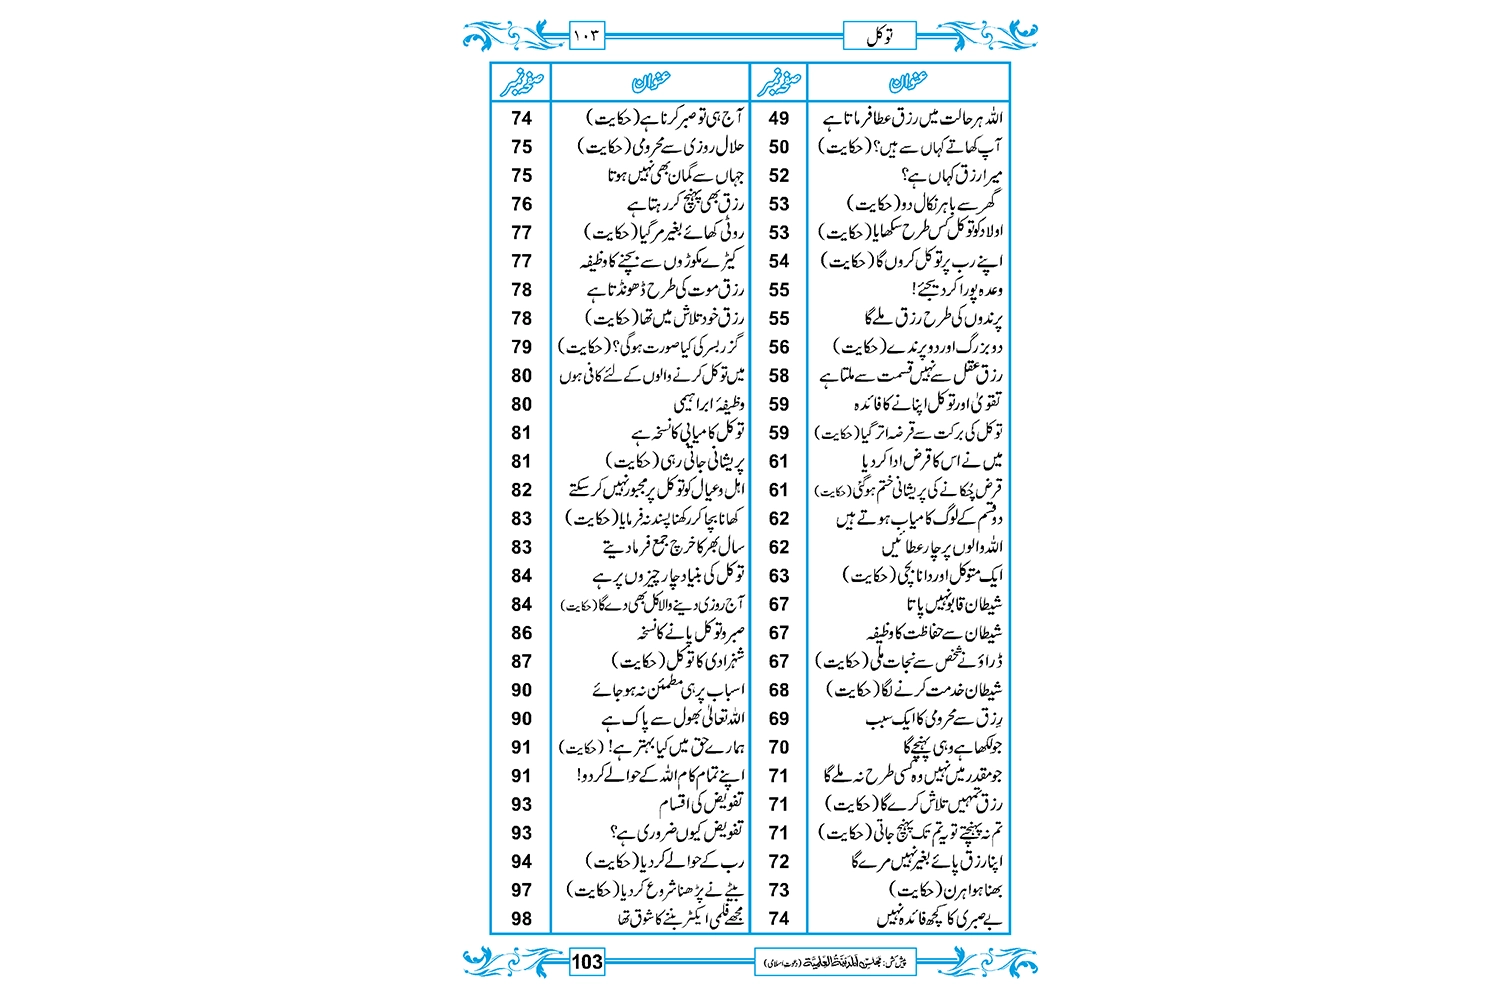 توکل
۱۰۳
عنوان صفحہ نمبر عنوان صفحہ نمبر
اللہ ہر حالت میں رزق عطا فرماتا ہے 49 آج ہی تو صبر کرنا ہے (حکایت) 74
آپ کھاتے کہاں سے ہیں؟ (حکایت) 50 حلال روزی سے محرومی (حکایت) 75
میرا رزق کہاں ہے؟ 52 جہاں سے گمان بھی نہیں ہوتا 75
گھر سے باہر نکال دو (حکایت) 53 رزق بھی پہنچ کر رہتا ہے 76
اولاد کو توکل کس طرح سکھایا (حکایت) 53 روٹی کھائے بغیر مر گیا (حکایت) 77
اپنے رب پر توکل کروں گا (حکایت) 54 کیڑے مکوڑوں سے بچنے کا وظیفہ 77
وعدہ پورا کر دیجئے! 55 رزق موت کی طرح ڈھونڈتا ہے 78
پرندوں کی طرح رزق ملے گا 55 رزق خود تلاش میں تھا (حکایت) 78
دو بزرگ اور دو پرندے (حکایت) 56 گزر بسر کی کیا صورت ہوگی؟ (حکایت) 79
رزق عقل سے نہیں قسمت سے ملتا ہے 58 میں توکل کرنے والوں کے لئے کافی ہوں 80
تقویٰ اور توکل اپنانے کا فائدہ 59 وظیفۂ ابراہیمی 80
توکل کی برکت سے قرضہ اتر گیا (حکایت) 59 توکل کامیابی کا نسخہ ہے 81
میں نے اس کا قرض ادا کر دیا 61 پریشانی جاتی رہی (حکایت) 81
قرض چُکانے کی پریشانی ختم ہوگئی (حکایت) 61 اہل و عیال کو توکل پر مجبور نہیں کر سکتے 82
دو قسم کے لوگ کامیاب ہوتے ہیں 62 کھانا بچا کر رکھنا پسند نہ فرمایا (حکایت) 83
اللہ والوں پر چار عطائیں 62 سال بھر کا خرچ جمع فرما دیتے 83
ایک متوکل اور دانا بچی (حکایت) 63 توکل کی بنیاد چار چیزوں پر ہے 84
شیطان قابو نہیں پاتا 67 آج روزی دینے والا کل بھی دے گا (حکایت) 84
شیطان سے حفاظت کا وظیفہ 67 صبر و توکل پانے کا نسخہ 86
ڈراؤنے شخص سے نجات ملی (حکایت) 67 شہزادی کا توکل (حکایت) 87
شیطان خدمت کرنے لگا (حکایت) 68 اسباب پر ہی مطمئن نہ ہو جائے 90
رِزق سے محرومی کا ایک سبب 69 اللہ تعالیٰ بھول سے پاک ہے 90
جو لکھا ہے وہی پہنچے گا 70 ہمارے حق میں کیا بہتر ہے! (حکایت) 91
جو مقدر میں نہیں وہ کسی طرح نہ ملے گا 71 اپنے تمام کام اللہ کے حوالے کر دو! 91
رزق تمہیں تلاش کرے گا (حکایت) 71 تفویض کی اقسام 93
تم نہ پہنچتے تو یہ تم تک پہنچ جاتی (حکایت) 71 تفویض کیوں ضروری ہے؟ 93
اپنا رزق پائے بغیر نہیں مرے گا 72 رب کے حوالے کر دیا (حکایت) 94
بھنا ہوا ہرن (حکایت) 73 بیٹے نے پڑھنا شروع کر دیا (حکایت) 97
بے صبری کا کچھ فائدہ نہیں 74 مجھے فلمی ایکٹر بننے کا شوق تھا 98
پیش کش: مجلس المدینۃ العلمیۃ (دعوت اسلامی)
103